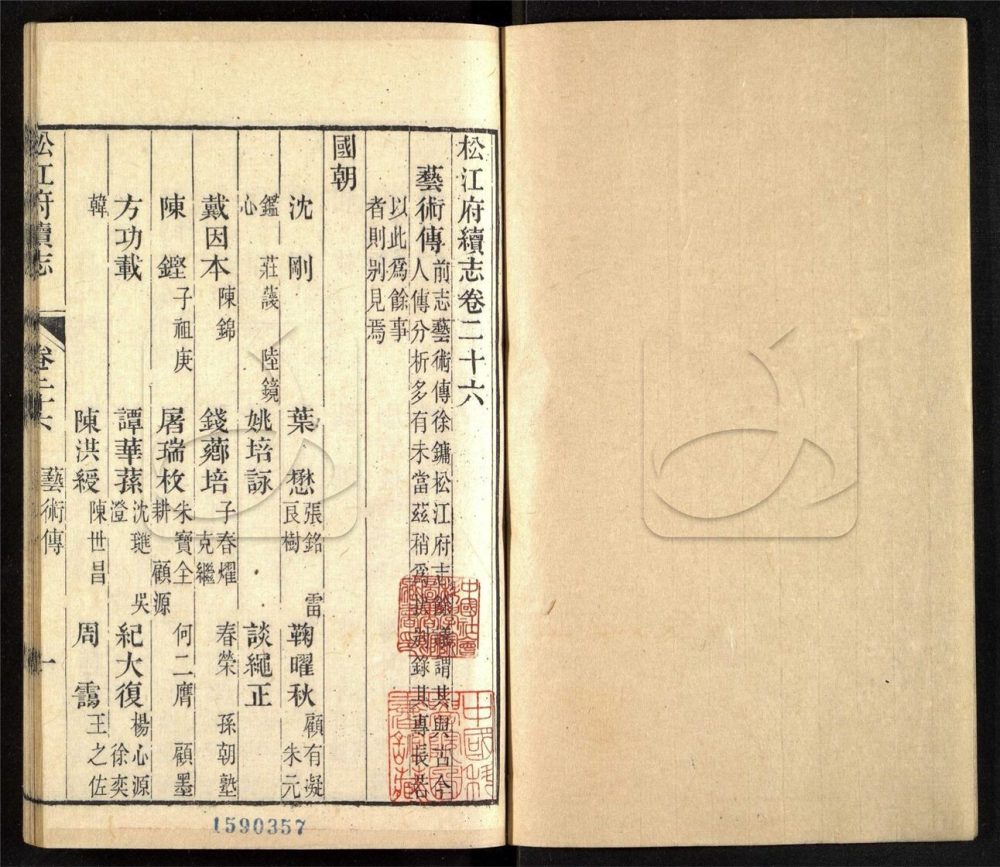 松江府續志卷二十六
藝術傳
前志藝術傳徐鏞松江府志
謂其與古今
人傳分析多有未當茲稍爲
錄其專長若
以此爲餘事
者則別見焉
國朝
沈　剛　葉　懋　張銘　雷　良樹　鞠曜秋　顧有凝　朱元
鑑　莊　陸鏡　心　姚培詠　談繩正
戴因本　陳錦　錢薌培　子春燿　克繼　春榮　孫朝塾
陳　鏗　子祖庚　屠瑞枚　朱寶全　耕　顧源　何二膺　顧墨
方功載　譚華蓀　沈璡　吳澄　紀大復　楊心源　徐奕
韓　陳洪綬　陳世昌　周　靄　王之佐
松江府續志　卷二十六　藝術傳　一
1590357